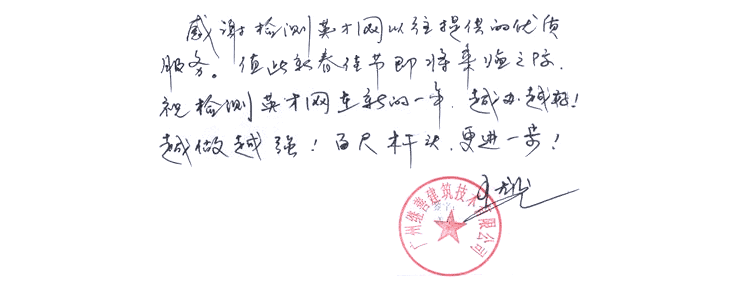 感谢检测英才网以往提供的优质
服务。值此新春佳节即将来临之际.
祝检测英才网在新的一年.越办越好!
越做越强!百尺杆头.更进一步!
广州继善建筑技术有限公司